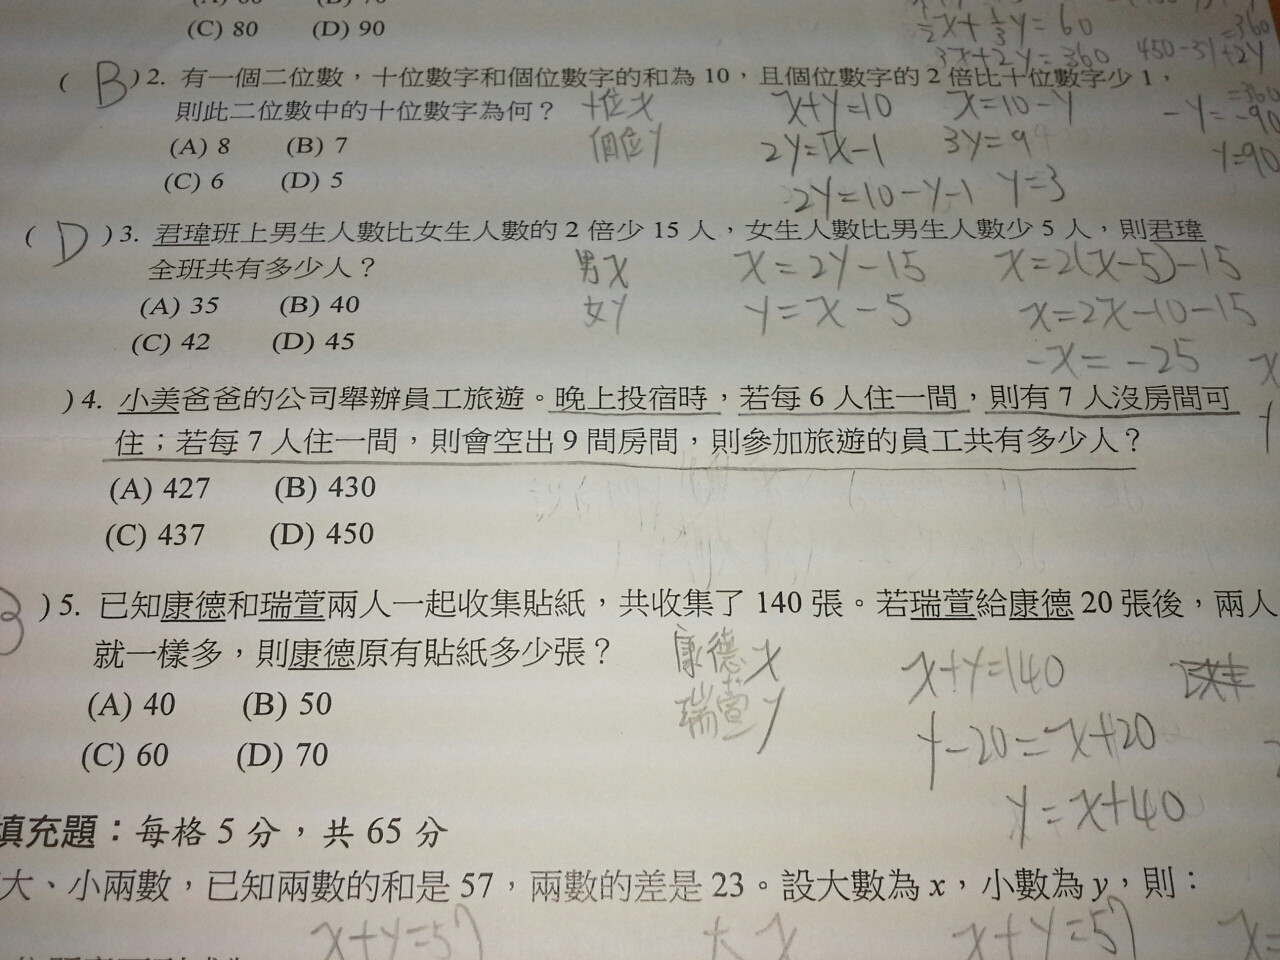 (C) 80 (D) 90
½x+⅓y=60
3x+2y=360 450-3y+2y
=360
( B ) 2. 有一個二位數，十位數字和個位數字的和為 10，且個位數字的 2 倍比十位數字少 1，
則此二位數中的十位數字為何？ 十位x x+y=10 x=10-y -y=-90
(A) 8 (B) 7 個位y 2y=x-1 3y=9 y=90
(C) 6 (D) 5 2y=10-y-1 y=3
( D ) 3. 君瑋班上男生人數比女生人數的 2 倍少 15 人，女生人數比男生人數少 5 人，則君瑋
全班共有多少人？ 男x x=2y-15 x=2(x-5)-15
(A) 35 (B) 40 女y y=x-5 x=2x-10-15
(C) 42 (D) 45 -x=-25
) 4. 小美爸爸的公司舉辦員工旅遊。晚上投宿時，若每 6 人住一間，則有 7 人沒房間可
住；若每 7 人住一間，則會空出 9 間房間，則參加旅遊的員工共有多少人？
(A) 427 (B) 430
(C) 437 (D) 450
) 5. 已知康德和瑞萱兩人一起收集貼紙，共收集了 140 張。若瑞萱給康德 20 張後，兩人
就一樣多，則康德原有貼紙多少張？ 康德x x+y=140
(A) 40 (B) 50 瑞萱y y-20=x+20
(C) 60 (D) 70 y=x+40
填充題：每格 5 分，共 65 分
大、小兩數，已知兩數的和是 57，兩數的差是 23。設大數為 x，小數為 y，則：
x+y=57 大 x x+y=57 x=